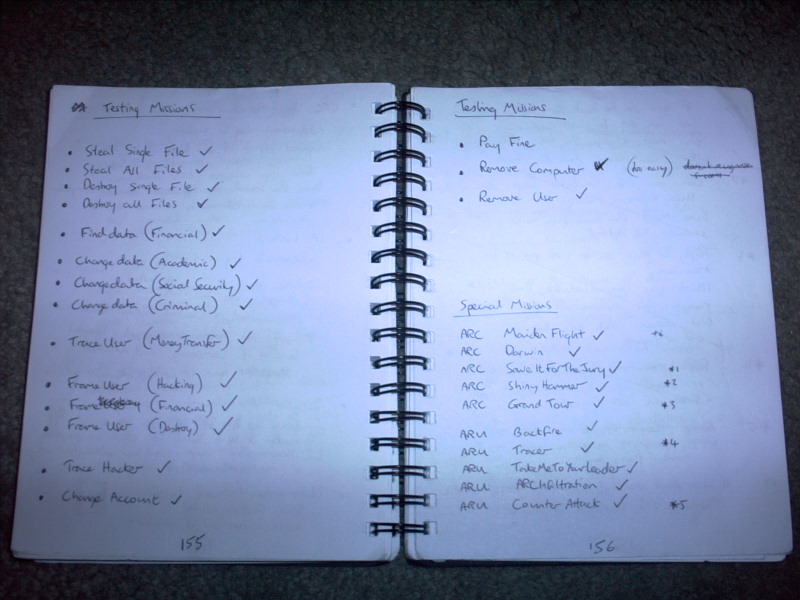 Testing Missions
• Steal Single File ✓
• Steal All Files ✓
• Destroy Single File ✓
• Destroy all Files ✓
• Find data (Financial) ✓
• Change data (Academic) ✓
• Change data (Social Security) ✓
• Change data (Criminal) ✓
• Trace User (Money Transfer) ✓
• Frame User (Hacking) ✓
• Frame User (Financial) ✓
• Frame User (Destroy) ✓
• Trace Hacker ✓
• Change Account ✓
155
Testing Missions
• Pay Fine
• Remove Computer ✓ (too easy)
• Remove User ✓
Special Missions
ARC Maiden Flight ✓ *6
ARC Darwin ✓
ARC SaveItForTheJury ✓ *1
ARC Shiny Hammer ✓ *2
ARC Grand Tour ✓ *3
ARU Backfire ✓
ARU Tracer ✓ *4
ARU TakeMeToYourLeader ✓
ARU ARChfiltration ✓
ARU Counter Attack ✓ *5
156